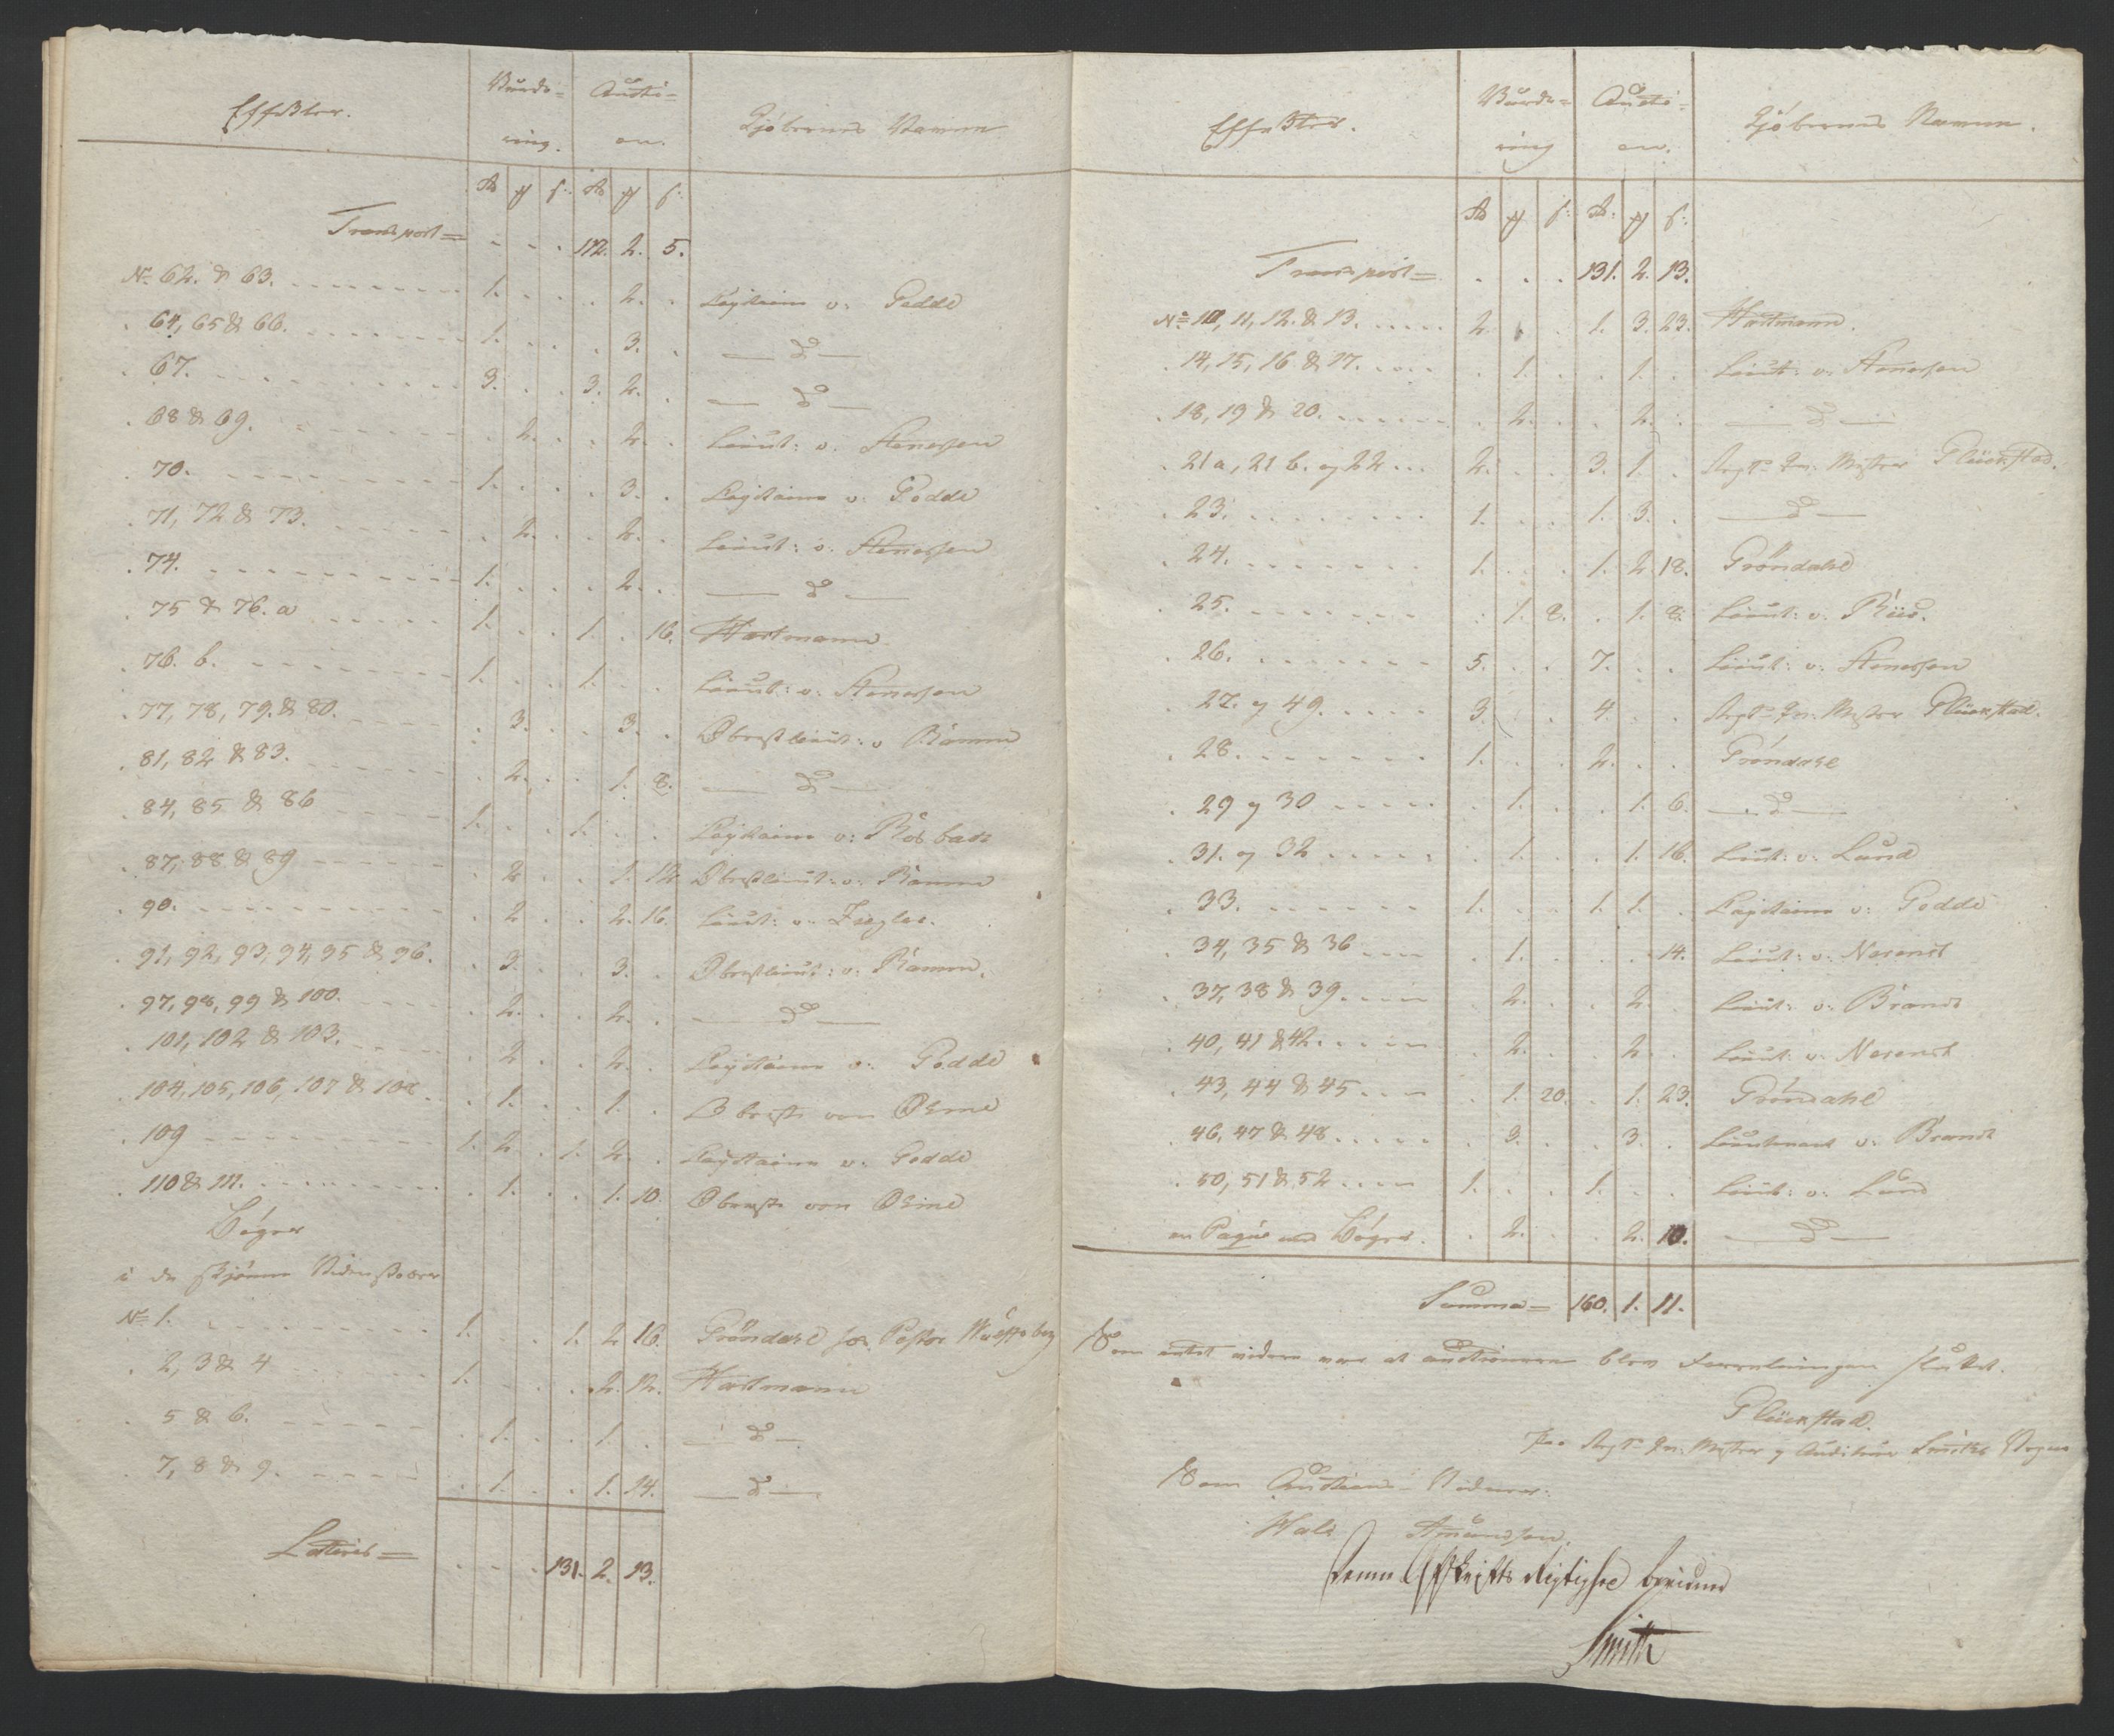 Effecter. Vurde= Aucti= Kjöbernes Navne
ring. on.
Rd ß s: Rd ß s:
Transport= - - - 112. 2. 5.
No 62. & 63. 1. . . . 2. . Capitaine v: Podde
. 64, 65 & 66. 1. . . . 3. . — do —
. 67. 3. . . 3. 2. . — do —
. 68 & 69. . 2. . . 2. . Lieut: v: Stenersen
. 70. 1. . . . 3. . Capitaine v: Podde
. 71, 72 & 73. . 2. . . 2. . Lieut: v: Stenersen
. 74. 1. . . . 2. . — do —
. 75 & 76. a 1. . . 1. . 16. Hartmann
. 76. b. 1. . . 1. . . Lieut: v: Stenersen
. 77, 78, 79. & 80. . 3. . . 3. . Obrestlieut: v Ramm
. 81, 82 & 83. . 2. . . 1. 8. — do —
. 84, 85 & 86 1. . . 1. . . Capitaine v:
. 87, 88 & 89 . 2 . . 1. 12 Obrestlieut: v: Ramm
. 90. . 2 . . 2. 16. Lieut: v: Ziegler.
. 91, 92, 93, 94, 95 & 96. . 3. . . 3. . Obrestlieut: v: Ramm.
. 97, 98, 99 & 100. . 2. . . 2. . — do —
. 101, 102 & 103. . 2 . . 2. . Capitaine v: Podde
. 104, 105, 106, 107 & 108. . 1. . . 1. . Obrest von Ohme
. 109 1. 2. . 1. 2. . Capitaine v: Podde
. 110 & 111. . 1. . . 1. 10. Obrest von Ohme
Böger
i de skjönne Videnskaber
No 1. 1. . . 1. 2 16. Gröndahl for Pastor
. 2, 3 & 4 1. . . . 2. 12. Hartmann
. 5 & 6. . 1. . . 1. . — do —
. 7, 8 & 9. . 1. . . 1. 14. — do —
Latteris= - - - 131. 2. 13.
Effecter. Vurde= Aucti= Kjöbernes Navne.
ring on.
Rd ß s: Rd: ß s:
Transport= . . . 131. 2. 13.
No 10, 11, 12. & 13. 2. . . 1. 3. 23. Hartmann.
. 14, 15, 16 & 17. . 1. . . 1. . Lieut: v: Stenersen
. 18, 19 & 20. . 2. . . 2. . — do —
. 21 a, 21 b. og 22 2. . . 3. 1. . Regt: Qv: Mester Glückstad.
. 23. 1. . . 1. 3. . — do —
. 24. 1. . . 1. 2 18. Gröndahl
. 25. . 1. 8. . 1. 8. Lieut: v: Riis.
. 26. 5. . . 7. . . Lieut: v: Stenersen
. 27. og 49. 3. . . 4. . . Regt: Qv: Mester Glückstad.
. 28. 1. . . 2. . . Gröndahl
. 29 og 30 . 1. . . 1. 6. — do —
. 31. og 32 . 1. . . 1. 16. Lieut: v: Lund
. 33. 1. . . 1. 1. . Capitaine v: Podde
. 34, 35 & 36 . 1. . . . 14. Lieut: v: Neserich
. 37, 38 & 39. . 2. . . 2. . Lieut: v: Brandt
. 40, 41 & 42. . 2. . . 2 . Lieut: v: Neserich
. 43, 44 & 45 . 1. 20. . 1. 23. Gröndahl
. 46, 47 & 48. . 3. . . 3. . Lieutenant v: Brandt
. 50, 51 & 52 1. . . 1. . . Lieut: v: Lund
en Paque med Böger. . 2. . . 2. 10. — do —
Summa= 160. 1. 11.
Som intet videre var at auctionere blev Forretningen sluttet.
Glückstad.
Paa Regt: Qv: Mester og Auditeur Smiths Vegne
Som Auctions Vidner.
Amundsen.
Denne Afskrifts Rigtighed bevidner
Smith